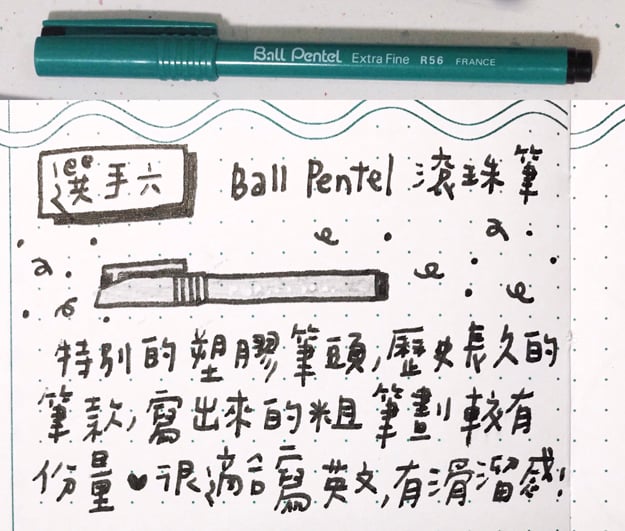 Ball Pentel Extra Fine R56 FRANCE
選手六 Ball Pentel 滾珠筆
特別的塑膠筆頭,歷史長久的
筆款,寫出來的粗筆劃較有
份量♥很適合寫英文,有滑溜感!